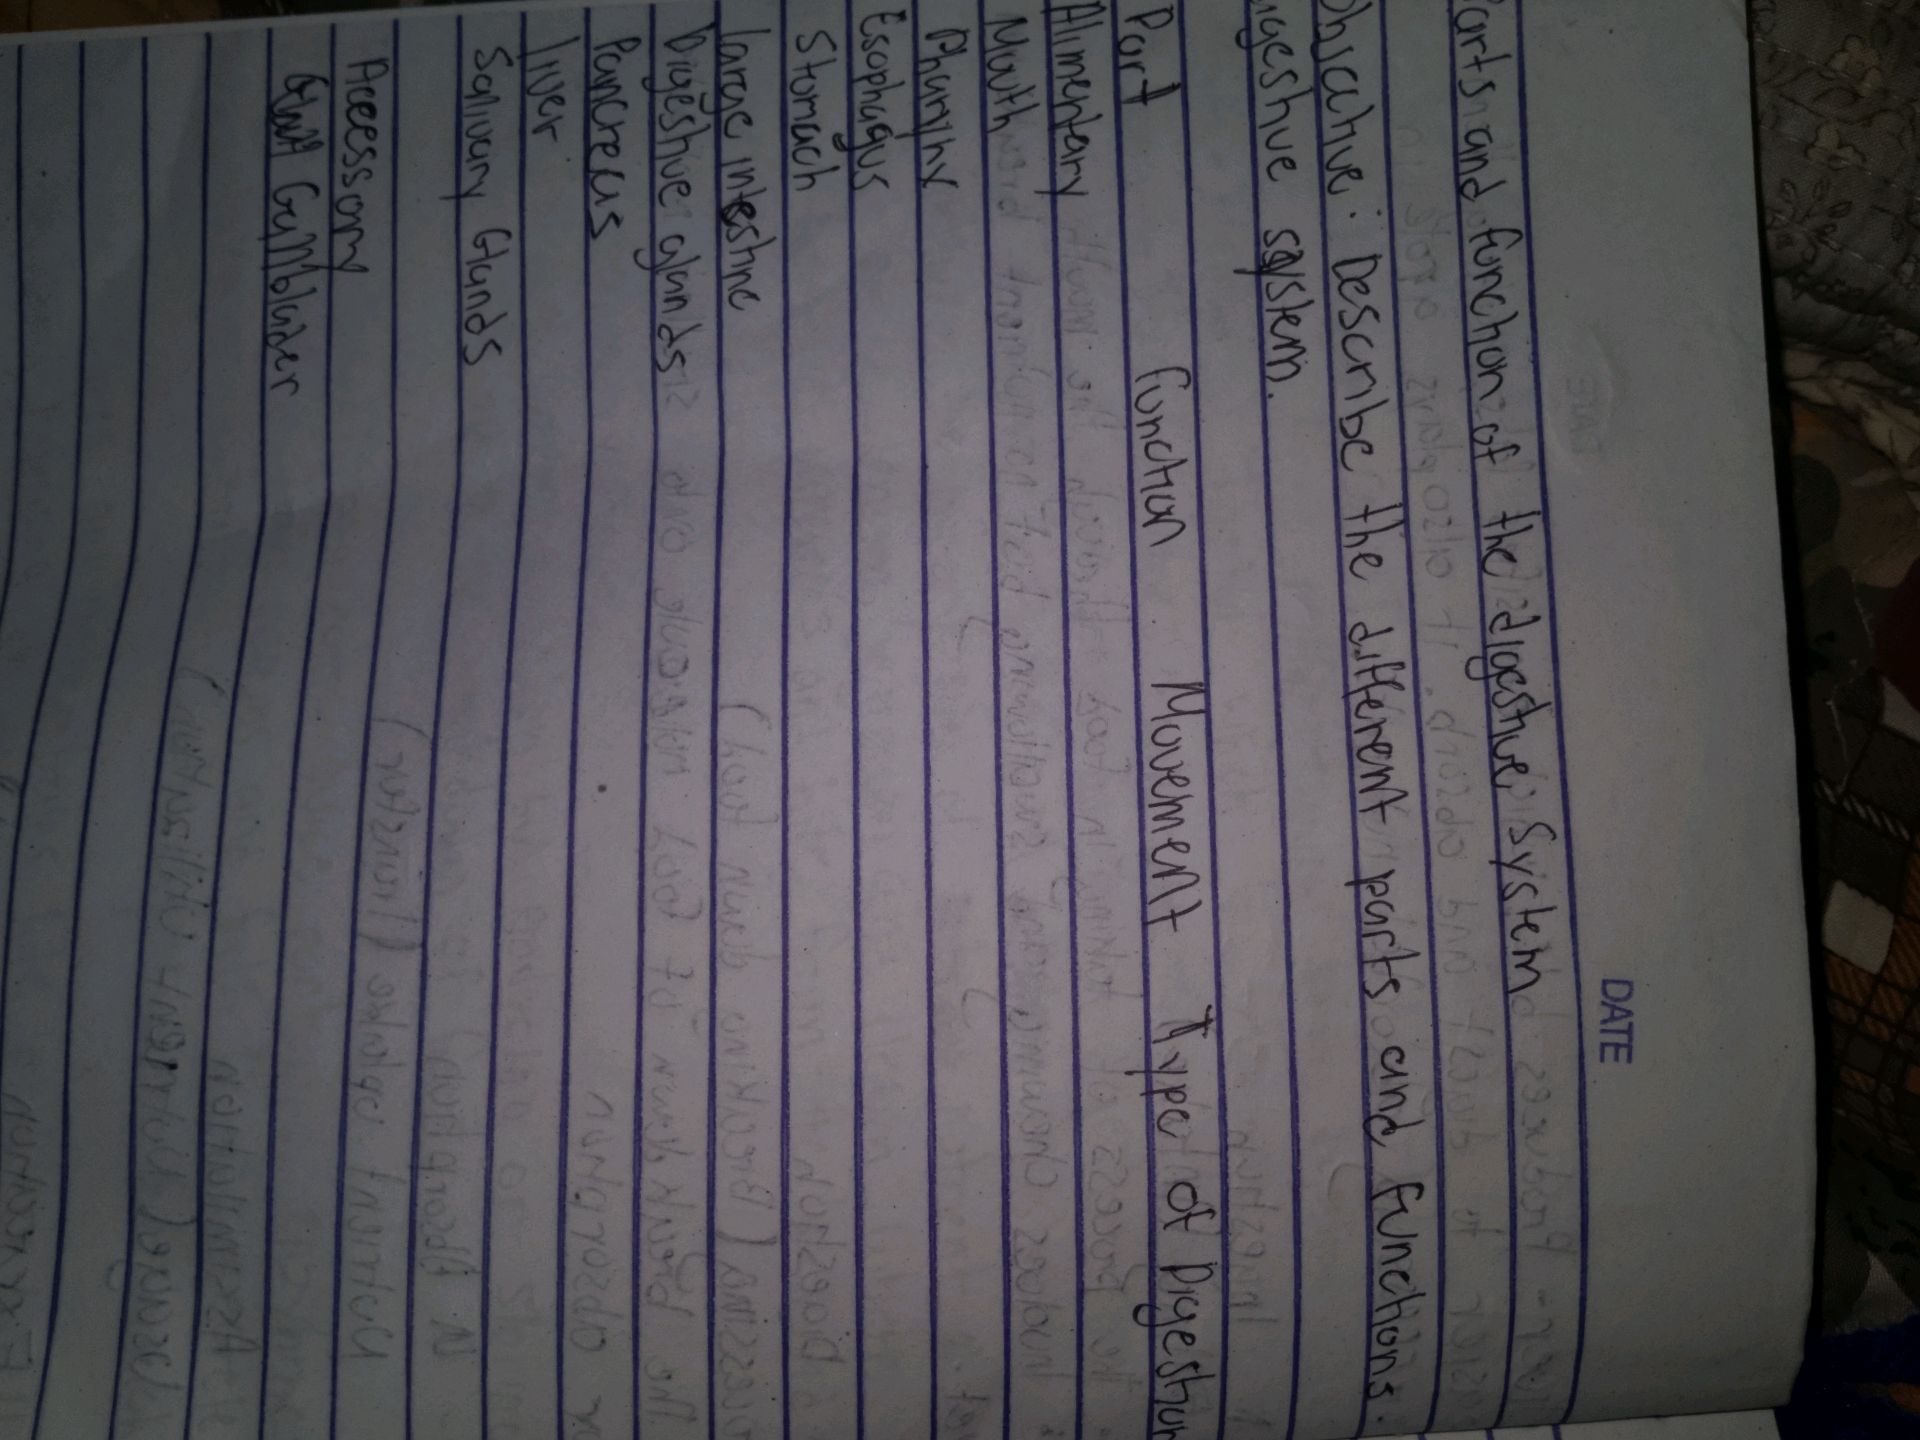 DATE
Parts and function of the digestive System
Objective: Describe the different parts and functions.
digestive system.
Part function Movement Type of Digestion
Alimentary
Mouth
Pharynx
Esophagus
Stomach
large intestine
Digestive glands
Pancreas
liver
Salivary Glands
Accessory
Gallblader